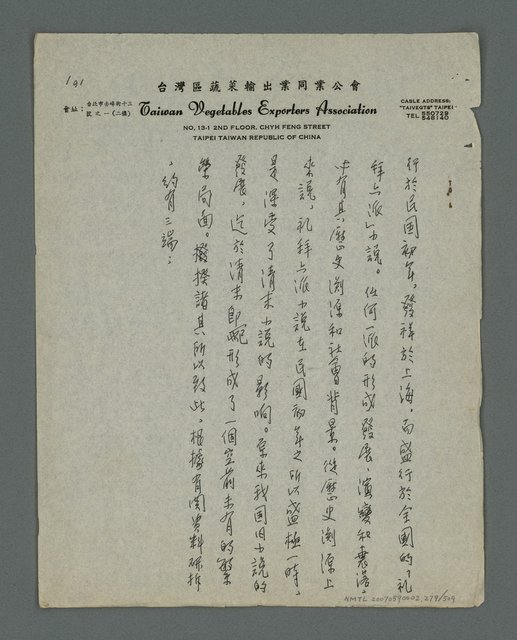 191
台灣區蔬菜輸出業同業公會
會址：台北市赤峰街十三號之一(二樓)
Taiwan Vegetables Exporters Association
NO. 13-1 2ND FLOOR. CHYH FENG STREET
TAIPEI TAIWAN REPUBLIC OF CHINA
CABLE ADDRESS:
"TAIVEGTS" TAIPEI
TEL 550729
546140
行於民国初年，發祥於上海，而盛行於全國的「礼
拜六派」小說。任何一派的形成、發展、演變和衰落，
帀有其歷史渊源和社會背景。從歷史渊源上
來說，礼拜六派小說在民國初年之所以盛極一時，
是深受了清末小說的影响。原來我国旧小說的
發展，迄於清末即呢形成了一個空前未有的繁
榮局面。揆諸其所以致此，根據有関資料研析
，約有三端：
NMTL 20070590002, 279/509